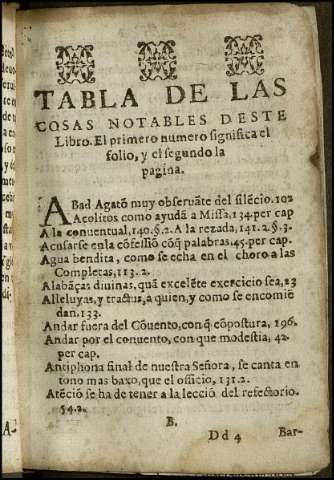 TABLA DE LAS
COSAS NOTABLES DESTE
Libro. El primero numero significa el
folio, y el segundo la
pagina.
ABad Agatõ muy obseruãte del silẽcio. 102
Acolitos como ayudã a Missa, 134. per cap
A la conuentual, 140. §. 2. A la rezada, 141. 2. §. 3.
Acusarse en la cõfessiõ cõq̃ palabras, 45. per cap.
Agua bendita, como se echa en el choro a las
Completas, 113. 2.
Alabãças diuinas, quã excelẽte exercicio sea, 23
Alleluyas, y tractus, a quien, y como se encomiẽ
dan, 133.
Andar fuera del Cõuento, con q̃ cõpostura, 196.
Andar por el conuento, con que modestia, 42.
per cap.
Antiphona final de nuestra Señora, se canta en
tono mas baxo, que el officio, 131. 2.
Atẽciõ se ha de tener a la lecciõ del refectorio.
54. 2.
B.
Dd 4 Bar-